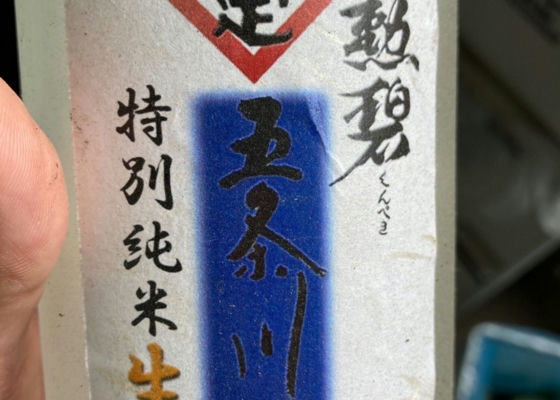 勲碧
くんぺき
定
五条川
特別純米
生